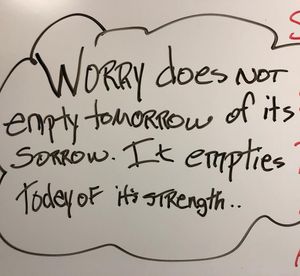 WORRY does NOT
empty tomorrow of its
SORROW. It empties
Today of it's strength..